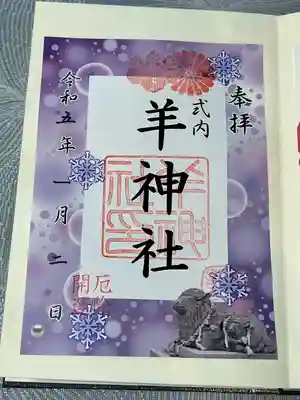 奉拝
式内
羊神社
令和五年一月二日